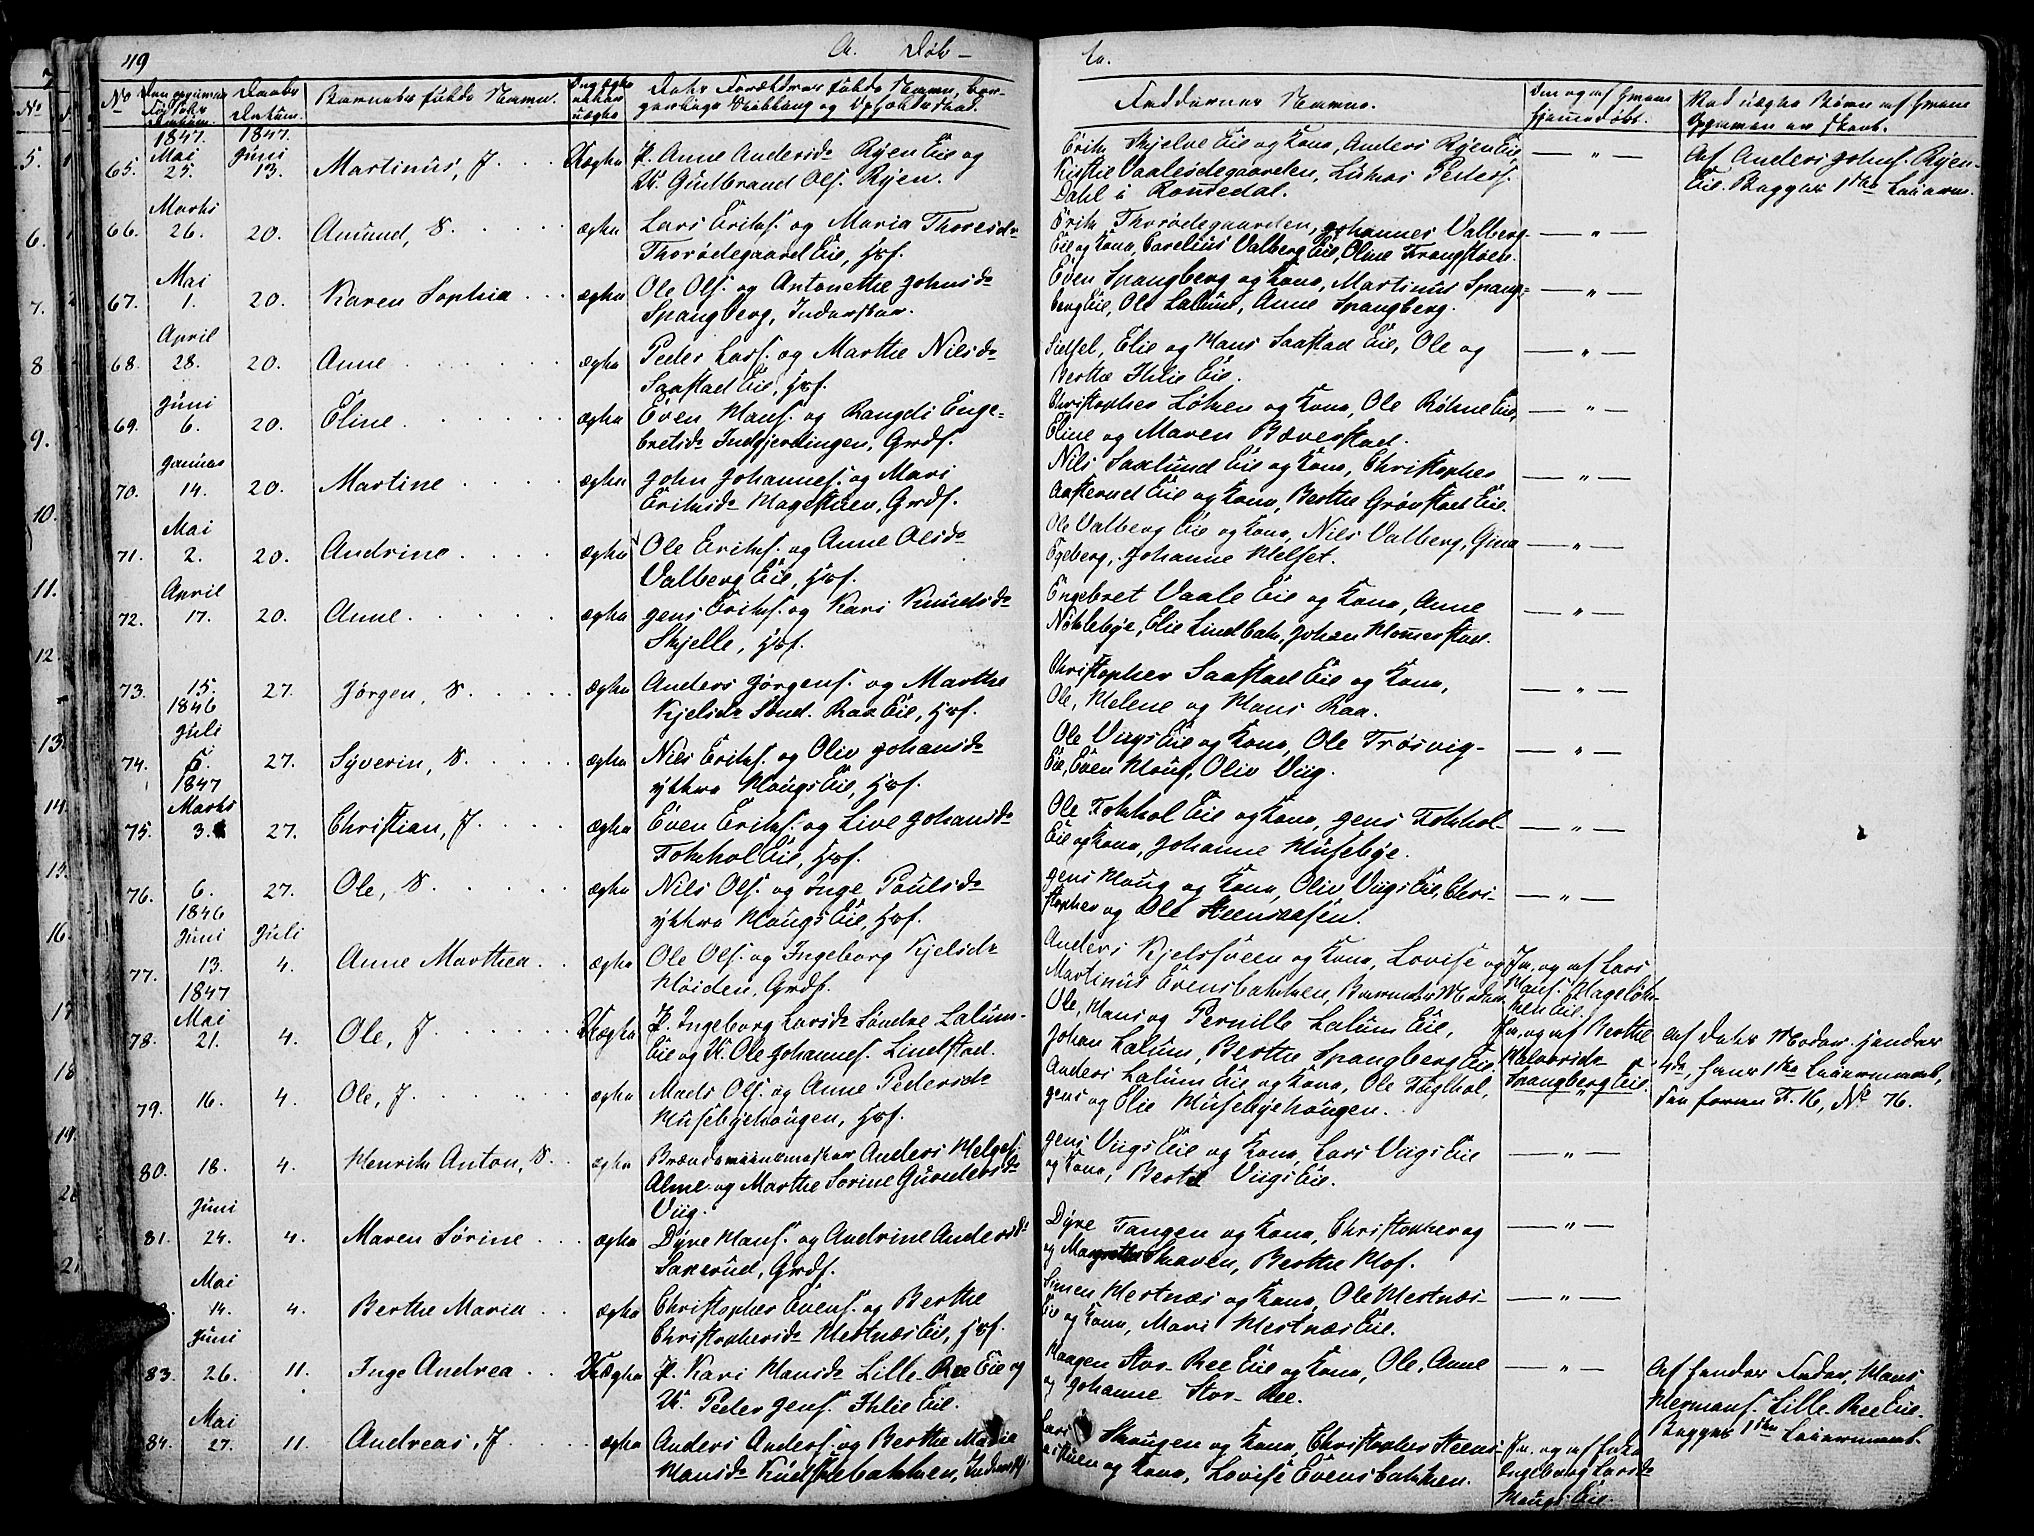 49
A. Døb-
te.
No
Barnets fulde Navn.
Faddernes Navne.
1847. 1847.
65. Mai 25. Juni 13. Martinus, J. Uægte P. Anne Andersd. Ryen Eie og
K. Guulbrand Ols. Ryen.
Erik Skjelve Eie og Kone, Anders Ryen Eie,
Dahl i Romsdal.
Af Anders Johns. Ryen-
Eie. Begges 1ste Leierm.
66. Marts 26. 20. Amund, S. ægte Lars Eriks. og Maria Thoresd.
Thorødegaard Eie, Hsf.
Erik Thorødegaarden, Johannes Valberg-
Eie og Kone, Carelius Valberg Eie, Oline
67. Mai 1. 20. Karen Sophia ægte Ole Ols. og Antonette Johnsd.
Spangberg, Inderster.
Even Spangberg og Kone, Martinus Spang-
berg Eie, Ole Lalum, Anne Spangberg.
68. April 28. 20. Anne ægte Peder Lars. og Marthe Nilsd.
Saastad Eie, Hsf.
Sidsel, Elie og Hans Saastad Eie, Ole og
Berthe Ihlie Eie.
69. Juni 6. 20. Eline ægte Even Hans. og Rangdi Enge-
bretsd. Indgjerdingen, Grdf.
Christopher Løken og Kone, Ole Røhne Eie,
Eline og Maren Bæverstad.
70. Januar 14. 20. Martine ægte John Johannes. og Mari
Eriksd. Hagestuen, Grdf.
Nils Saxlund Eie og Kone, Christopher
Aasterud Eie og Kone, Berthe Grøvstad Eie.
71. Mai 2. 20. Andrine ægte Ole Eriks. og Anne Olsd.
Valberg Eie, Hsf.
Ole Valberg Eie og Kone, Nils Valberg, Gina
Egeberg, Johanne Melset.
72. April 17. 20. Anne ægte Jens Eriks. og Kari Knudsd.
Skjelle, Hsf.
Engebret Vaale Eie og Kone, Anne
Nøklebye, Elie Lindbak, Johan Hommerstad.
73. 15. 27. Jørgen, S. ægte Anders Jørgens. og Marthe
Kjelsd. Sønd. Raa Eie, Hsf.
Christopher Saastad Eie og Kone,
Ole, Helene og Hans Raa.
74. 1846 Juli 5. 27. Syverin, S. ægte Nils Eriks. og Oliv Johansd.
ythre Haugs Eie, Hsf.
Ole Viigs Eie og Kone, Ole Trøsvig-
Eie, Even Haug, Oliv Viig.
75. 1847 Marts 3. 27. Christian, J. ægte Even Eriks. og Live Johansd.
Fokhol Eie, Hsf.
Ole Fokhol Eie og Kone, Jens Fokhol-
Eie og Kone, Johanne Musebye.
76. 6. 27. Ole, S. ægte Nils Ols. og Inge Poulsd.
ythre Haugs Eie, Hsf.
Jens Haug og Kone, Oliv Viigs Eie, Chri-
stopher og Ole Steensaasen.
77. 1846 Juni 13. Juli 4. Anne Marthea ægte Ole Ols. og Ingeborg Kjelsd.
Moiden, Grdf.
Anders Kjelssveen og Kone, Lovise og
Martinus Evensbakken, Barnets Moder.
Ja, og af Lars
Hans. Hageløk-
ken Eie.
78. 1847 Mai 21. 4. Ole, J. Uægte P. Ingeborg Larsd. Søndre Lalum-
Eie og K. Ole Johannes. Lindstad.
Ole, Hans og Pernille Lalum Eie,
Johan Lalum, Berthe Spangberg Eie.
Ja, og af Berthe
Halvorsd.
Spangberg Eie.
Af dets Moder. Hendes
4de, hans 1ste Leiermaal,
See foran F. 16, No 76.
79. 16. 4. Ole, J. ægte Mads Ols. og Anne Pedersd.
Musebyehaugen, Hsf.
Anders Lalum Eie og Kone, Ole Fuglhol,
Jens og Elie Musebyehaugen.
80. 18. 4. Henrik Anton, S. ægte Brændemaanemester Anders Helges.
Alme og Marthe Sorine Gundersd.
Viig.
Jens Viigs Eie og Kone, Lars Viigs Eie
og Kone, Berte Viigs Eie.
81. Juni 24. 4. Maren Sørine ægte Dyre Hans. og Andrine Andersd.
Saxerud, Grdf.
Dyre Tangen og Kone, Christopher og
og Margrethe Skaven, Berthe Hof.
Mai 14. 4. Berthe Maria ægte Christopher Evens. og Berthe
Christophersd. Hestnæs Eie, Hsf.
Simen Hestnæs og Kone, Ole Hestnæs-
Eie og Kone, Mari Hestnæs Eie.
83. Juni 26. 11. Inge Andrea Uægte P. Kari Hansd. Lille-Ree Eie og
K. Peder Jens. Ihlie Eie.
Haagen Stor-Ree Eie og Kone, Ole, Anne
og Johanne Stor-Ree.
Af hendes Fader, Hans
Hermans. Lille-Ree Eie.
Begges 1ste Leiermaal.
84. Mai 27. 11. Andreas, J. ægte Anders Anders. og Berthe Maria
Hansd. Kudskebakken, Inderst.
Lars Skaugen og Kone, Christopher Steens-
og Kone, Lovise Evensbakken.
Ja, og af Enke
Ingeborg Larsd.
Haugs Eie.